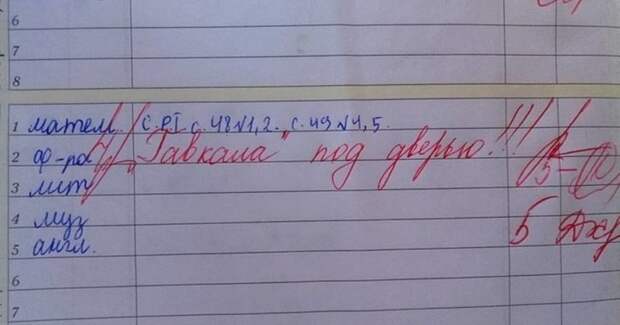 6
7
8
1 матем. с. РТ с. 48 №1, 2. с. 49 №4, 5.
2 ф-ра !!! "Гавкала" под дверью!!! 5-
3 лит
4 муз
5 англ. 5
6
7